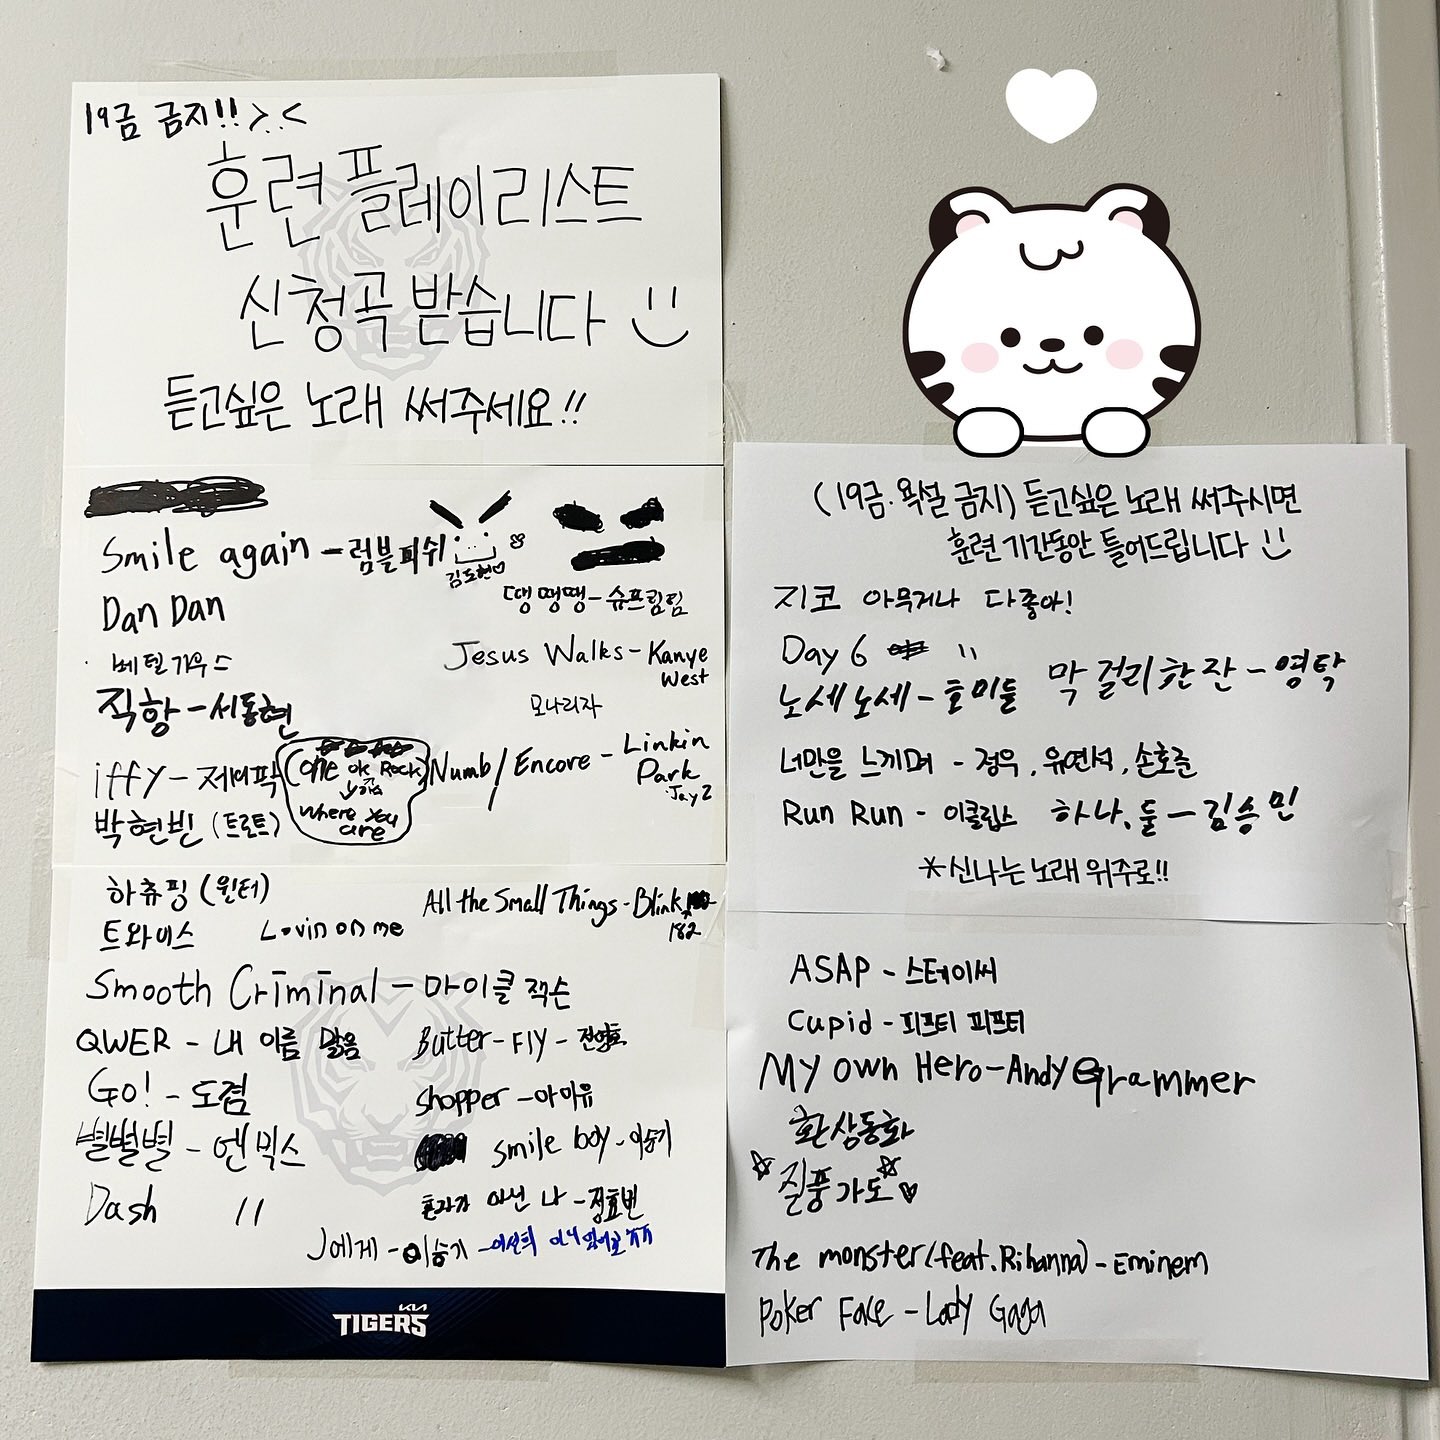 19금 금지!! >.<
훈련 플레이리스트
신청곡 받습니다
듣고싶은 노래 써주세요!!
Smile again - 럼블피쉬
김도현♡
땡땡땡 - 슈프림팀
Dan Dan
Jesus Walks - Kanye West
베텔기우스
모나리자
직항 - 서동현
iffy - 제이팍
(One ok Rock)
where you are
Numb / Encore - Linkin Park
Jay Z
박현빈 (트로트)
하츄핑 (윈터)
All the Small Things - Blink 182
트와이스
Lovin on me
Smooth Criminal - 마이클 잭슨
QWER - 내 이름 맑음
Butter-Fly - 전영호
Go! - 도겸
shopper - 아이유
별별별 - 엔믹스
smile boy - 이승기
Dash 〃
혼자가 아닌 나 - 정효빈
J에게 - 이승기
KIA
TIGERS
(19금. 욕설 금지) 듣고싶은 노래 써주시면
훈련 기간동안 틀어드립니다
지코 아무거나 다좋아!
Day 6 〃
막걸리 한잔 - 영탁
노세노세 - 호미들
너만을 느끼며 - 정우, 유연석, 손호준
Run Run - 이클립스
하나, 둘 - 김승민
*신나는 노래 위주로!!
ASAP - 스테이씨
Cupid - 피프티 피프티
My own Hero - Andy Grammer
환상동화
☆질풍가도☆♡
The monster (feat. Rihanna) - Eminem
Poker Face - Lady Gaga